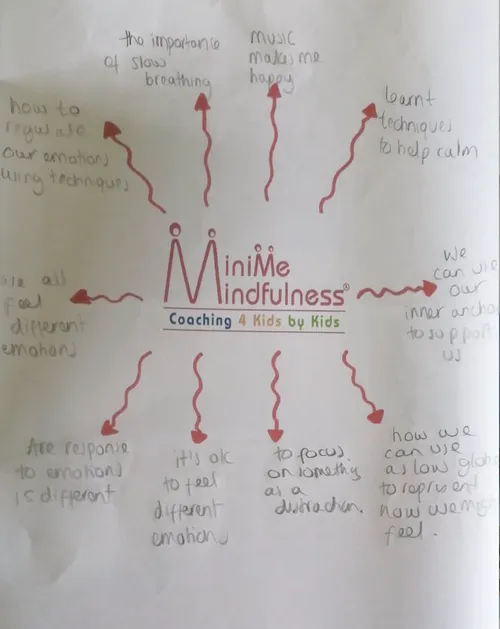 the importance
of slow
breathing
music
makes me
happy
learnt
techniques
to help calm
how to
regulate
our emotions
using techniques
MiniMe
Mindfulness®
Coaching 4 Kids by Kids
we all
feel
different
emotions
We
can use
our
inner anchor
to support
us
Are response
to emotions
is different
it's ok
to feel
different
emotions
to focus
on somethig
as a
distraction.
how we
can use
a slow
to represent
how we
feel.